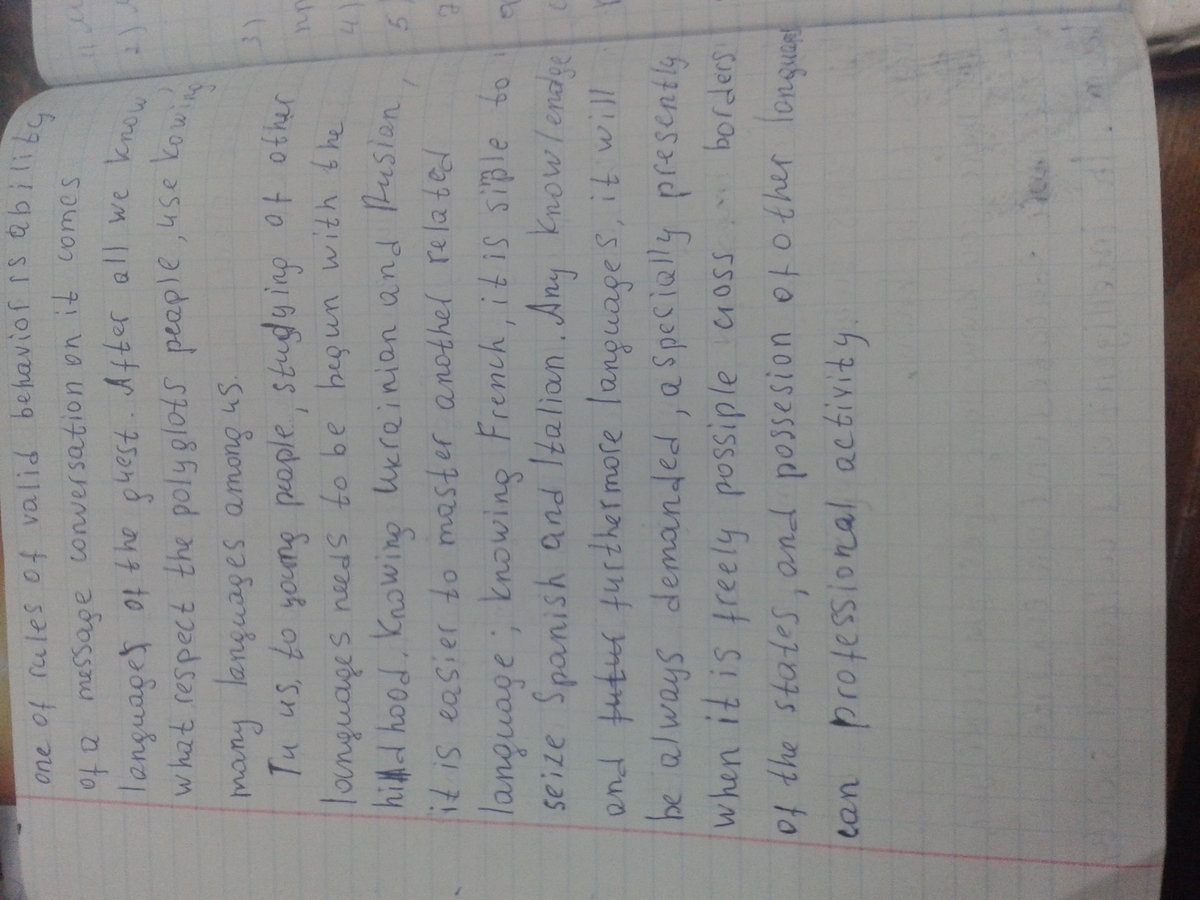 one of rules of valid behavior is ability
of a message conversation on it comes
languages of the guest. After all we know,
what respect the polyglots peaple, use kowing
many languages among us.
Tu us, to young people, studying of other
languages needs to be begun with the
hildhood. Knowing Ukrainian and Rusian,
it is easier to master another related
language; knowing French, it is siple to
seize Spanish and Italian. Any knowlendge
and futur furthermore languages, it will
be always demanded, aspecially presently
when it is freely possiple cross borders
of the states, and possesion of other language
can professional activity.
1)
2)
3)
4)
5)